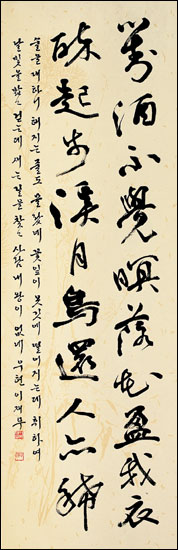 對酒不覺暝落花盈我衣
醉起步溪月鳥還人亦稀
술을 대하니 해지는 줄도 몰랐네 꽃잎이 옷깃에 떨어지는데 취하여
달빛을 밟고 걷는데 새는 길을 찾고 사람 내왕이 없네 우현